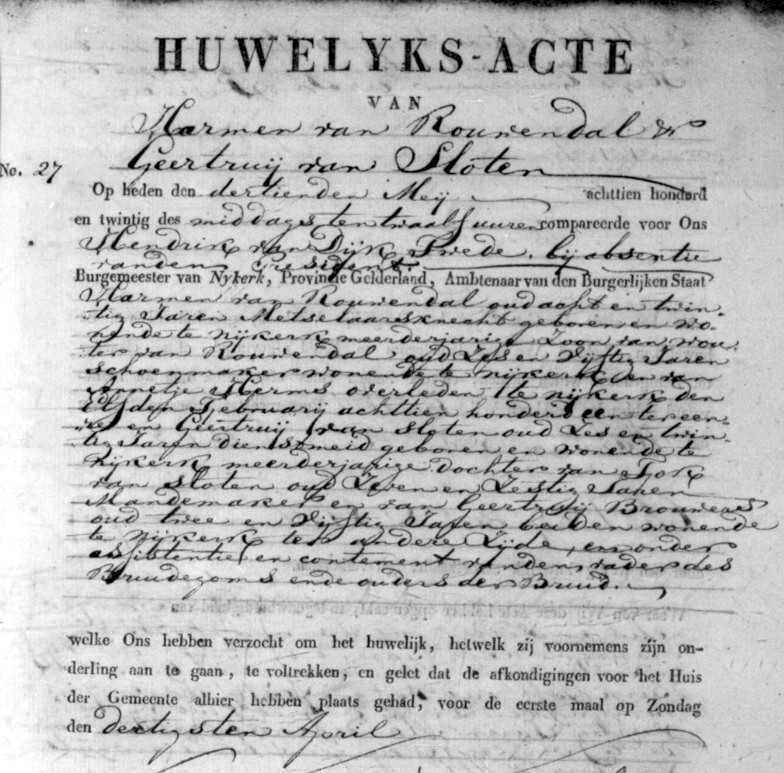 HUWELYKS-ACTE
VAN
Harmen van Rouwendal &
Geertruij van Sloten
No. 27
Op heden den dertienden Meij achttien honderd
en twintig des middags ten twaalf uuren compareerde voor Ons
Hendrik van Dijk Tweede, bij absentie
van den President
Burgemeester van Nykerk, Provincie Gelderland, Ambtenaar van den Burgerlijken Staat
Harmen van Rouwendal oud acht en twin-
tig Jaren Metselaarsknecht geboren en wo-
nende te Nijkerk meerderjarige Zoon van Wou-
ter van Rouwendal oud Zes en Vijftig Jaren
schoenmaker wonende te Nijkerk en van
Annetje Herms overleden te Nijkerk den
Elfden Februarij achttien honderd een ter een-
re en Geertruij van Sloten oud Zes en twin-
tig Jaren dienstmeid geboren en wonende te
Nijkerk meerderjarige dochter van
van Sloten oud Zeven en Zestig Jaren
Mandemaker en van Geertruij Brouwer
oud twee en Vijftig Jaren beiden wonende
te Nijkerk ter andere Zijde, en onder
assistentie en contement van den vader des
Bruidegoms ende ouders der Bruid.
welke Ons hebben verzocht om het huwelijk, hetwelk zij voornemens zijn on-
derling aan te gaan, te voltrekken, en gelet dat de afkondigingen voor het Huis
der Gemeente alhier hebben plaats gehad, voor de eerste maal op Zondag
den dertigsten April